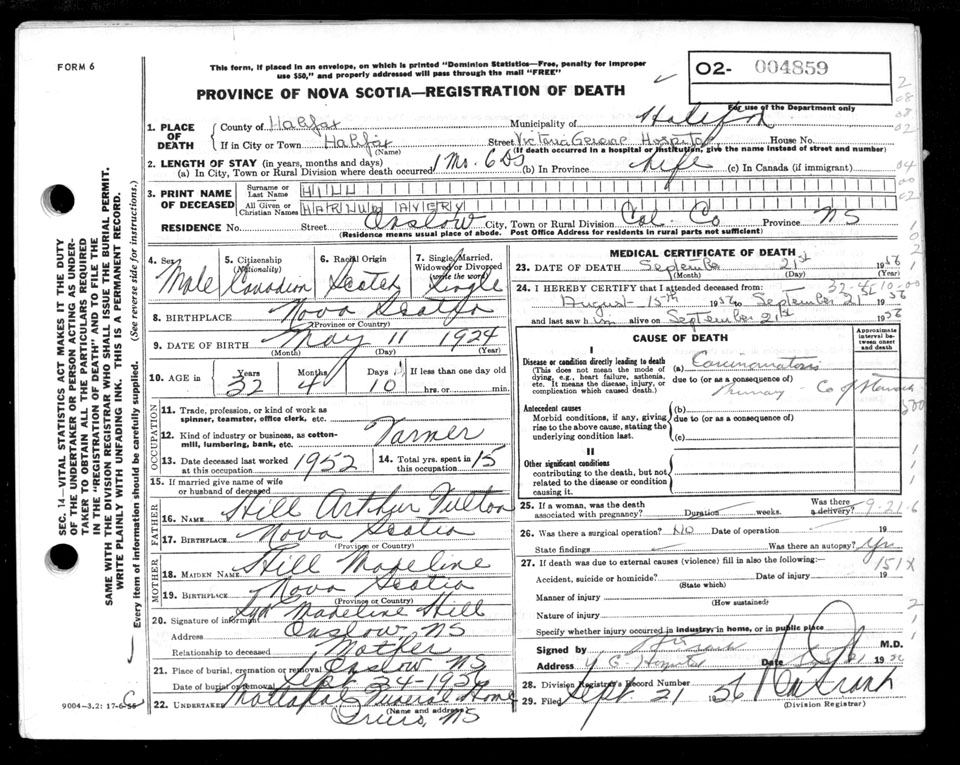 FORM 6
This form, if placed in an envelope, on which is printed "Dominion Statistics—Free, penalty for improper
use $50," and properly addressed will pass through the mail "FREE"
02- 004859
PROVINCE OF NOVA SCOTIA—REGISTRATION OF DEATH
For use of the Department only
1. PLACE OF DEATH
County of Halifax Municipality of Halifax
If in City or Town Halifax Street Victoria General Hospital House No.
(Name) (If death occurred in a hospital or institution, give the name instead of street and number)
2. LENGTH OF STAY (in years, months and days)
(a) In City, Town or Rural Division where death occurred 1 Mo. 6 Ds (b) In Province Life (c) In Canada (if immigrant)
3. PRINT NAME OF DECEASED
Surname or Last Name HILL
All Given or Christian Names AVERY
RESIDENCE No. Street Onslow City, Town or Rural Division Col. Co Province NS
(Residence means usual place of abode. Post Office Address for residents in rural parts not sufficient)
4. Sex Male
5. Citizenship (Nationality) Canadian
6. Racial Origin Scotch
7. Single, Married, Widowed or Divorced (write the word) Single
8. BIRTHPLACE Nova Scotia
(Province or Country)
9. DATE OF BIRTH May 11 1924
(Month) (Day) (Year)
10. AGE in Years 32 Months 4 Days 10 If less than one day old
hrs. or min.
OCCUPATION
11. Trade, profession, or kind of work as
spinner, teamster, office clerk, etc.
12. Kind of industry or business, as cotton-
mill, lumbering, bank, etc. Farmer
13. Date deceased last worked at this occupation 1952
14. Total yrs. spent in this occupation 15
15. If married give name of wife
or husband of deceased
FATHER
16. NAME Hill Arthur Fulton
17. BIRTHPLACE Nova Scotia
(Province or Country)
MOTHER
18. MAIDEN NAME Hill Madeline
19. BIRTHPLACE Nova Scotia
(Province or Country)
20. Signature of informant Sgd Madeline Hill
Address Onslow, NS
Relationship to deceased Mother
21. Place of burial, cremation or removal Onslow NS
Date of burial or removal Sept 24-1956
22. UNDERTAKER Funeral Home
(Name and address)
Truro, NS
9004-3.2: 17-6-55
MEDICAL CERTIFICATE OF DEATH
23. DATE OF DEATH September 21st 1956
(Month) (Day)
24. I HEREBY CERTIFY that I attended deceased from:
August 15th 1956 to September 21st 1956
and last saw him alive on September 21st 1956
CAUSE OF DEATH
Approximate interval between onset and death
I
Disease or condition directly leading to death
(This does not mean the mode of
dying, e.g., heart failure, asthenia,
etc. It means the disease, injury, or
complication which caused death.)
(a) Carcinomatosis
due to (or as a consequence of)
Primary - Ca of Stomach
Antecedent causes
Morbid conditions, if any, giving
rise to the above cause, stating the
underlying condition last.
(b)
due to (or as a consequence of)
(c)
II
Other significant conditions
contributing to the death, but not
related to the disease or condition
causing it.
25. If a woman, was the death
associated with pregnancy? Duration weeks. Was there a delivery?
9-21-6
26. Was there a surgical operation? NO Date of operation 19
State findings Was there an autopsy? Yes
151X
27. If death was due to external causes (violence) fill in also the following:—
Accident, suicide or homicide? Date of injury 19
(State which)
Manner of injury
(How sustained)
Nature of injury
Specify whether injury occurred in industry, in home, or in public place
Signed by M.D.
Address V G Hospital Date 1956
28. Division Registrar's Record Number
29. Filed Sept 21 1956
(Division Registrar)
SEC. 14—VITAL STATISTICS ACT MAKES IT THE DUTY
OF THE UNDERTAKER OR PERSON ACTING AS UNDER-
TAKER TO OBTAIN ALL THE PARTICULARS REQUIRED
IN THE "REGISTRATION OF DEATH" AND TO FILE THE
SAME WITH THE DIVISION REGISTRAR WHO SHALL ISSUE THE BURIAL PERMIT.
WRITE PLAINLY WITH UNFADING INK. THIS IS A PERMANENT RECORD.
Every item of information should be carefully supplied. (See reverse for instructions.)